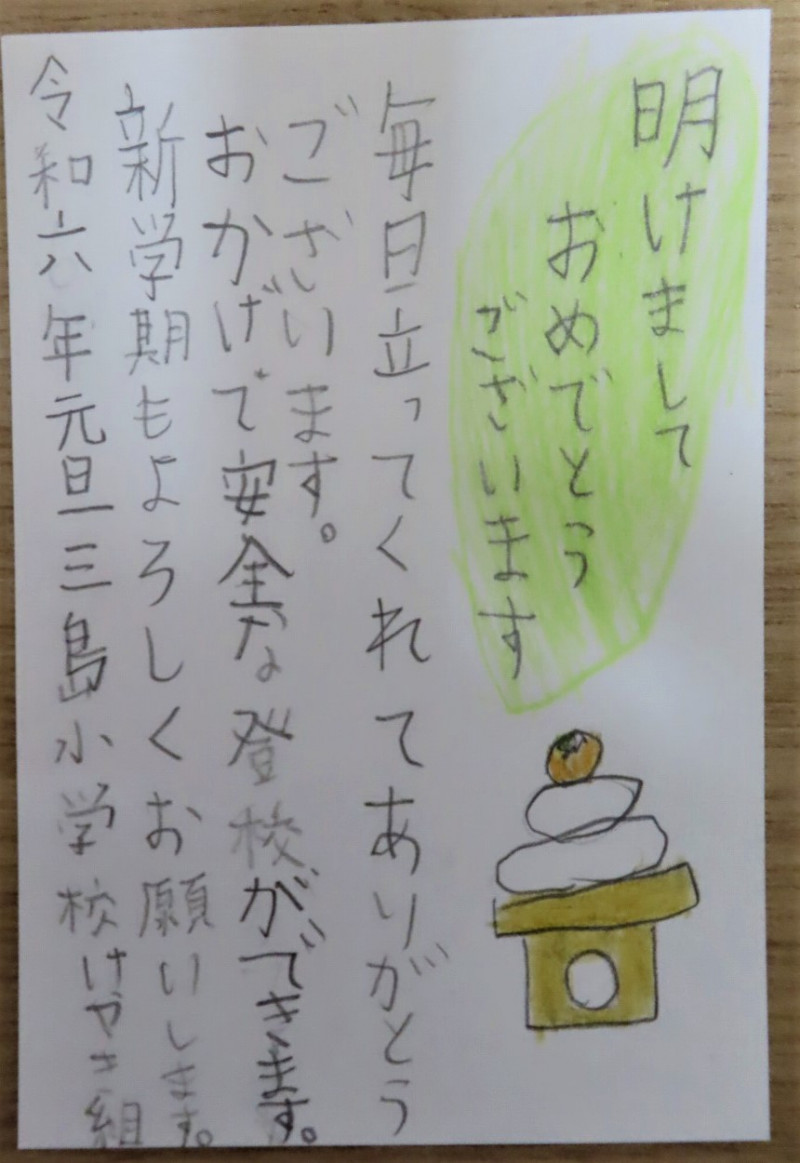 明けまして
おめでとう
ございます
毎日立ってくれてありがとう
ございます。
おかげで安全な登校ができます。
新学期もよろしくお願いします。
令和六年元旦三島小学校けやき組